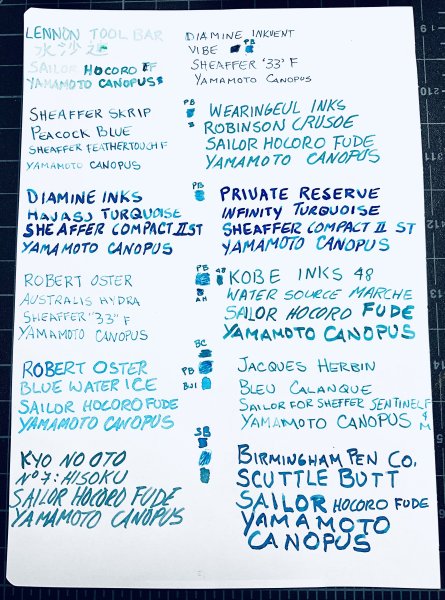 LENNON TOOL BAR
水沙連
SAILOR HOCORO FF
YAMAMOTO CANOPUS
DIAMINE INKVENT
VIBE PB
SHEAFFER '33' F
YAMAMOTO CANOPUS
SHEAFFER SKRIP
PEACOCK BLUE
SHEAFFER FEATHERTOUCH F
YAMAMOTO CANOPUS
PB
WEARINGEUL INKS
ROBINSON CRUSOE
SAILOR HOCORO FUDE
YAMAMOTO CANOPUS
DIAMINE INKS
HAVASU TURQUOISE
SHEAFFER COMPACT II ST
YAMAMOTO CANOPUS
PB
PRIVATE RESERVE
INFINITY TURQUOISE
SHEAFFER COMPACT II ST
YAMAMOTO CANOPUS
ROBERT OSTER
AUSTRALIS HYDRA
SHEAFFER "33" F
YAMAMOTO CANOPUS
PB 48
AH
KOBE INKS 48
WATER SOURCE MARCHE
SAILOR HOCORO FUDE
YAMAMOTO CANOPUS
ROBERT OSTER
BLUE WATER ICE
SAILOR HOCORO FUDE
YAMAMOTO CANOPUS
BC
PB
BWI
JACQUES HERBIN
BLEU CALANQUE
SAILOR FOR SHEFFER SENTINEL F
YAMAMOTO CANOPUS & M
KYO NO OTO
Nº 7: HISOKU
SAILOR HOCORO FUDE
YAMAMOTO CANOPUS
SB
BIRMINGHAM PEN CO.
SCUTTLE BUTT
SAILOR HOCORO FUDE
YAMAMOTO
CANOPUS